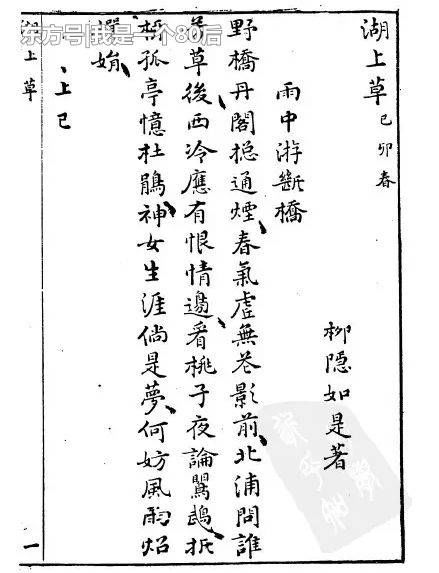 东方号|我是一个80后
湖上草 己卯春
柳隠如是著
雨中游斷橋
野橋丹閣捴通煙春氣虛無花影前北浦問誰
芳草後西冷應有恨情邊看桃子夜論鸎鵡折
柳孤亭憶杜鵑神女生涯倘是夢何妨風雨炤
嬋娟
上巳
湖上草 一